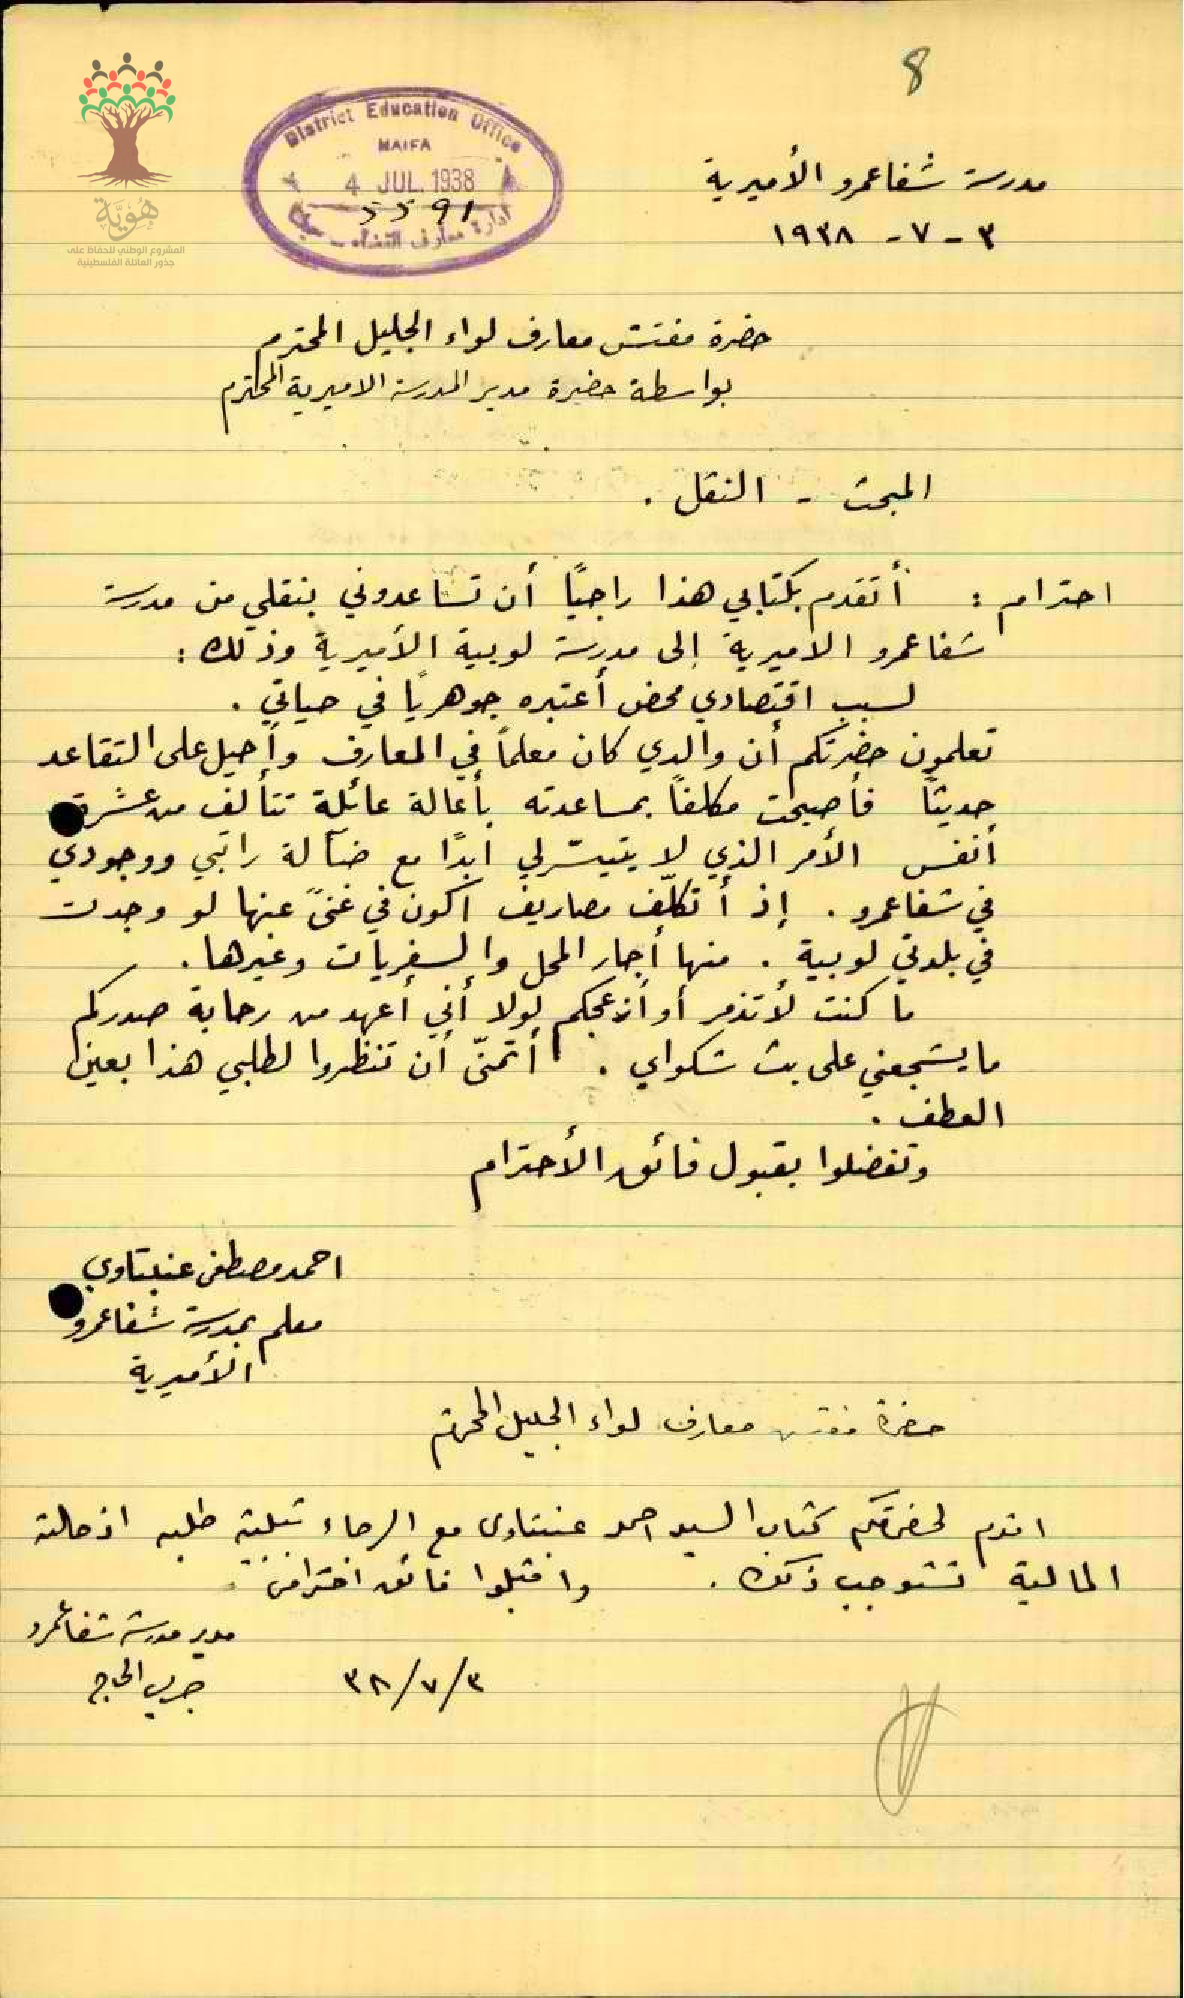 8
هُوِيَّة
المشروع الوطني للحفاظ على
جذور العائلة الفلسطينية
District Education Office
HAIFA
4 JUL. 1938
5591
ادارة معارف القضاء - حيفا
مدرسة شفاعمرو الأميرية
٣ - ٧ - ١٩٣٨
حضرة مفتش معارف لواء الجليل المحترم
بواسطة حضرة مدير المدرسة الاميرية المحترم
المبحث - النقل .
احترام : أتقدم بكتابي هذا راجيًا أن تساعدوني بنقلي من مدرسة
شفاعمرو الاميرية إلى مدرسة لوبية الأميرية وذلك :
لسبب اقتصادي محض أعتبره جوهريًا في حياتي .
تعلمون حضرتكم أن والدي كان معلماً في المعارف وأحيل على التقاعد
حديثًا فأصبحت مكلفاً بمساعدته بأعالة عائلة تتألف من عشرة
أنفس الأمر الذي لا يتيسّر لي ابدًا مع ضآلة راتبي ووجودي
في شفاعمرو . إذ أتكلّف مصاريف اكون في غنىً عنها لو وجدت
في بلدتي لوبية . منها أجار المحل والسفريات وغيرها .
ما كنت لأتذمر أو أزعجكم لولا أني أعهد من رحابة صدركم
ما يشجعني على بث شكواي . أتمنّى أن تنظروا لطلبي هذا بعين
العطف .
وتفضلوا بقبول فائق الأحترام
احمد مصطفى عنبتاوي
معلم بمدرسة شفاعمرو
الأميرية
حضرة مفتش معارف لواء الجليل المحترم
اقدم لحضرتكم كتاب السيد احمد عنبتاوي مع الرجاء تلبية طلبه اذ حالته
المالية تستوجب ذلك . واقبلوا فائق احترامي
مدير مدرسة شفاعمرو
٣/٧/٣٨